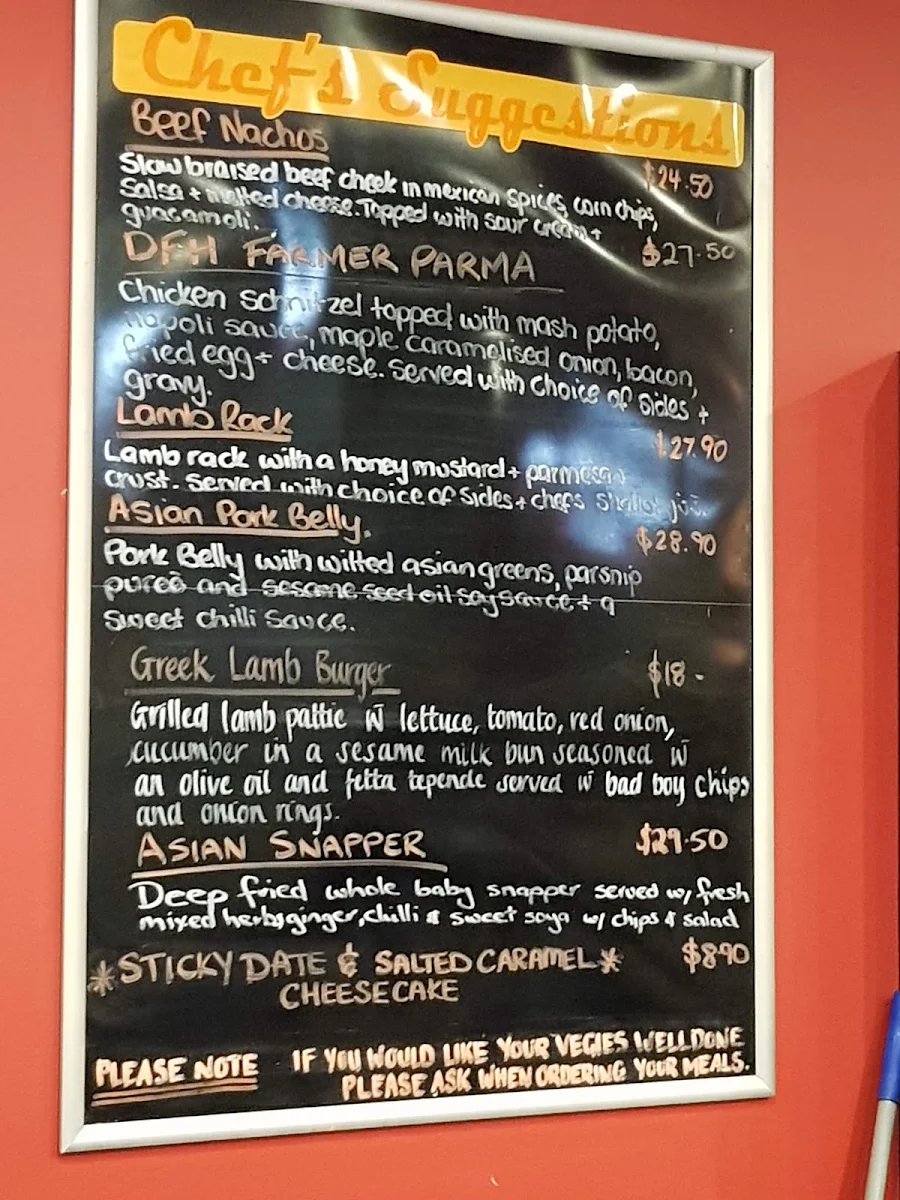 Chef's Suggestions
Beef Nachos
$24.50
Slow braised beef cheek in mexican spices, corn chips,
Salsa + melted cheese. Topped with sour cream +
guacamoli.
DFH FARMER PARMA
$27.50
Chicken schnitzel topped with mash potato,
Napoli sauce, maple caramelised onion, bacon,
fried egg + cheese. served with choice of sides +
gravy.
Lamb Rack
$27.90
Lamb rack with a honey mustard + parmesan
crust. served with choice of sides + chefs
Asian Pork Belly.
$28.90
Pork Belly with wilted asian greens, parsnip
pureé and sesame seed oil soy sauce + a
Sweet chilli sauce.
Greek Lamb Burger
$18-
Grilled lamb pattie w̄ lettuce, tomato, red onion,
cucumber in a sesame milk bun seasoned w̄
an olive oil and fetta tepende served w̄ bad boy chips
and onion rings.
ASIAN SNAPPER
$29.50
Deep fried whole baby snapper served w/ fresh
mixed herbs, ginger, chilli & sweet soya w/ chips & salad
*STICKY DATE & SALTED CARAMEL*
$8.90
CHEESECAKE
PLEASE NOTE IF YOU WOULD LIKE YOUR VEGIES WELL DONE
PLEASE ASK WHEN ORDERING YOUR MEALS.